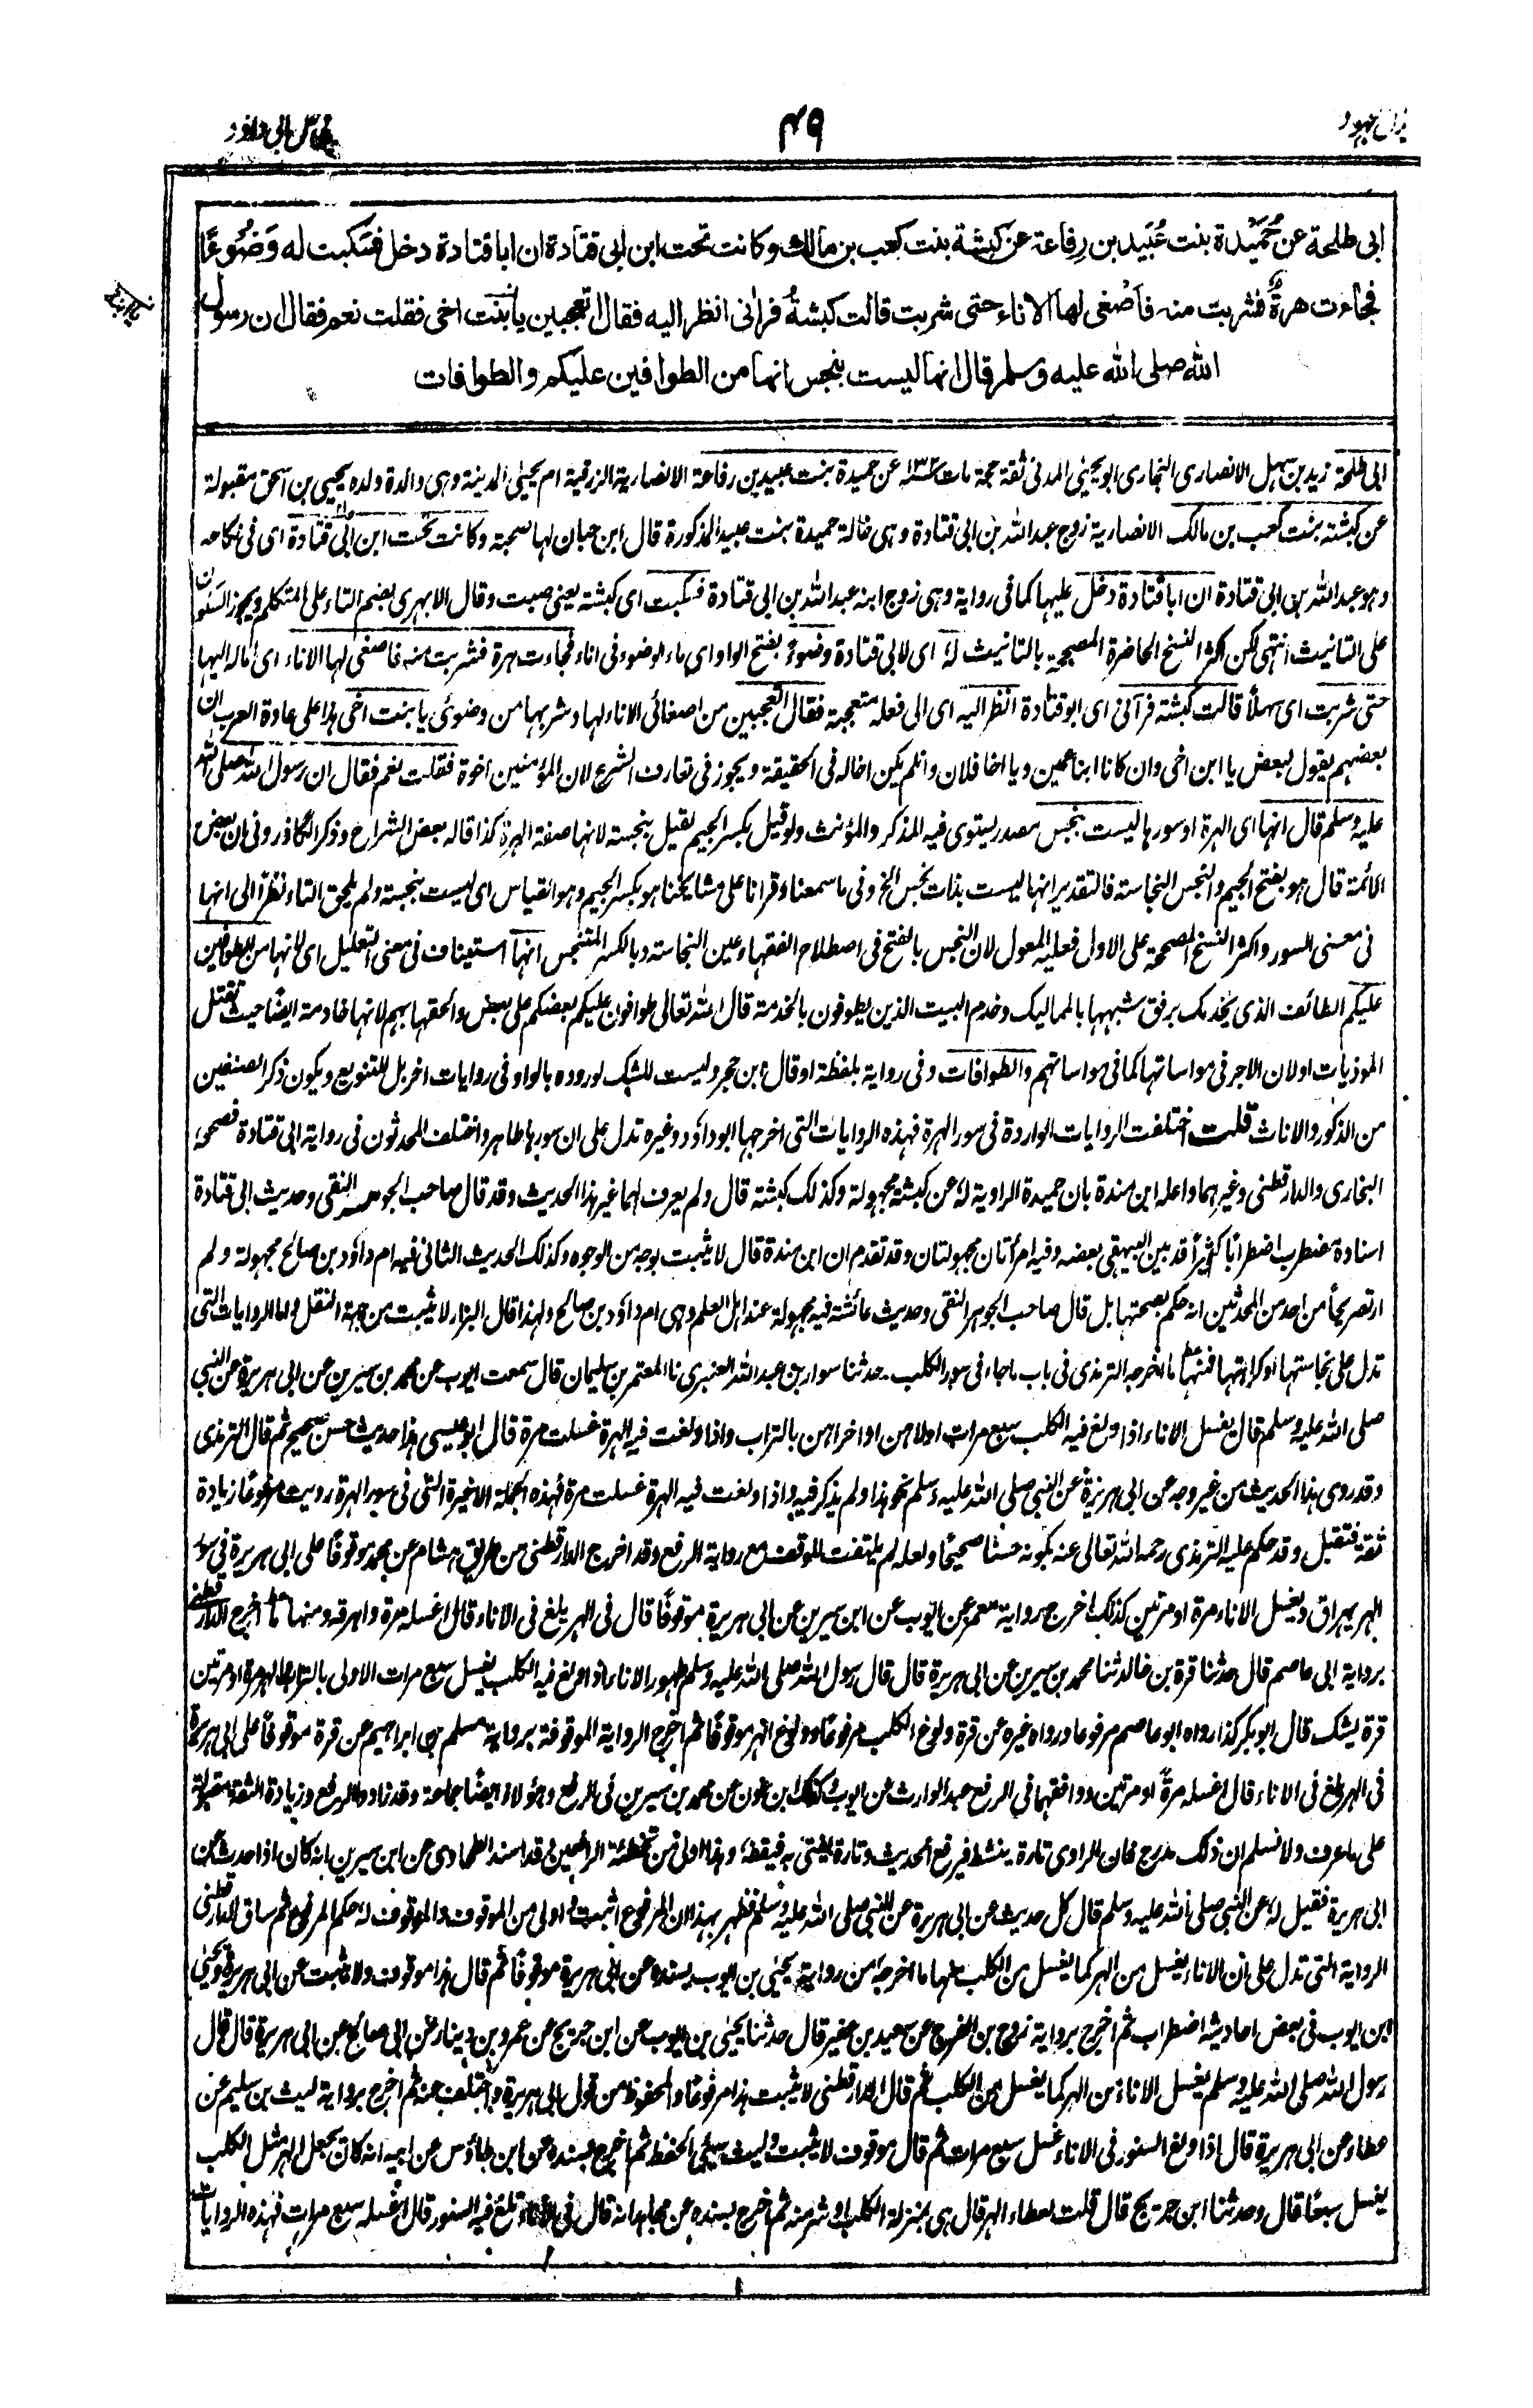 ٤٩
ابى طلحة عن حُمَيدة بنت عُبَيد بن رِفاعة عن كبشة بنت كعب بن مالك وكانت تحت ابن ابى قتادة ان ابا قتادة دخل فسكبت له وَضُوءًا
فجاءت هرةٌ فشربت منه فاَصْغى لها الاناء حتى شربت قالت كبشةُ فرانى انظر اليه فقال اتعجبين يا بنت اخى فقلت نعم فقال ان رسول
الله صلى الله عليه وسلم قال انها ليست بنجس انها من الطوافين عليكم والطوافات
ابى طلحة زيد بن سهل الانصارى النجارى ابو يحيىٰ المدنى ثقة حجة مات ١٣٢ عن حميدة بنت عبيد بن رفاعة الانصارية الزرقية ام يحيىٰ المدينة وهى والدة ولده يحيى بن اسحق مقبولة
عن كبشة بنت كعب بن مالك الانصارية زوج عبدالله بن ابى قتادة وهى خالة حميدة بنت عبيد المذكورة قال ابن حبان لها صحبة وكانت تحت ابن ابى قتادة اى فى نكاحه
وهو عبدالله بن ابى قتادة ان ابا قتادة دخل عليها كما فى رواية وهى زوج ابنه عبدالله بن ابى قتادة فسكبت اى كبشة يعنى صبت وقال الابهرى بضم التاء على المتكلم ويجوز السكون
على التانيث انتهى لكن اكثر النسخ الحاضرة المصححة بالتانيث لهٗ اى لابى قتادة وضوءً بفتح الواو اى ماء الوضوء فى اناء فجاءت هرة فشربت منه فاصغى لها الاناء اى اماله اليها
حتى شربت اى سهلاً قالت كبشة فرآنى اى ابو قتادة انظر اليه اى الى فعله متعجبة فقال اتعجبين من اصغائى الاناء لها وشربها من وضوئى يا بنت اخى هذا على عادة العرب ان
بعضهم يقول لبعض يا ابن اخى وان كانا ابنا عمين ويا اخا فلان وان لم يكن اخا له فى الحقيقة ويجوز فى تعارف الشرع لان المؤمنين اخوة فقلت نعم فقال ان رسول الله صلى الله
عليه وسلم قال انها اى الهرة او سورها ليست بنجس مصدر يستوى فيه المذكر والمؤنث ولو قيل بكسر الجيم لقيل بنجسة لانها صفة الهرة كذا قاله بعض الشراح وذكر الكاذرونى ان بعض
الائمة قال هو بفتح الجيم والنجس النجاسة فالتقدير انها ليست بذات نجس الخ وفى ما سمعنا وقرانا على مشايخنا هو بكسر الجيم وهو القياس اى ليست بنجسة ولم يلحق التاء نظرًا الى انها
فى معنى السور واكثر النسخ المصححة على الاول فعليه المعول لان النجس بالفتح فى اصطلاح الفقهاء عين النجاسة وبالكسر المتنجس انها استيناف فى معنى التعليل اى لانها من الطوافين
عليكم الطائف الذى يخدمك برفق شبهها بالمماليك وخدم البيت الذين يطوفون بالخدمة قال الله تعالى طوافون عليكم بعضكم على بعض والحقها بهم لانها خادمة ايضًا حيث تقتل
الموذيات اولان الاجر فى مواساتها كما فى مواساتهم والطوافات وفى رواية بلفظة او قال ابن حجر وليست للشك لوروده بالواو فى روايات اخر بل للتنويع ويكون ذكر الصنفين
من الذكور والاناث قلت اختلفت الروايات الواردة فى سور الهرة فهذه الروايات التى اخرجها ابو داؤد وغيره تدل على ان سورها طاهر واختلف المحدثون فى رواية ابى قتادة فصححه
البخارى والدارقطنى وغيرهما واعله ابن مندة بان حميدة الراوية لهٗ عن كبشة مجهولة وكذلك كبشة قال ولم يعرف لهما غير هذا الحديث وقد قال صاحب الجوهر النقى وحديث ابى قتادة
اسناده مضطرب اضطرابًا كثيرًا قد بين البيهقى بعضه وفيه امرأتان مجهولتان وقد تقدم ان ابن مندة قال لا يثبت بوجه من الوجوه وكذلك الحديث الثانى فيه ام داؤد بن صالح مجهولة ولم
ار تصريحًا من احد من المحدثين انه حكم بصحتها بل قال صاحب الجوهر النقى وحديث عائشة فيه مجهولة عند اهل العلم وهى ام داؤد بن صالح ولهذا قال البزار لا يثبت من جهة النقل واما الروايات التى
تدل على نجاستها او كراهتها فمنها ما اخرجه الترمذى فى باب ما جاء فى سور الكلب۔ حدثنا سوار بن عبدالله العنبرى نا المعتمر بن سليمان قال سمعت ايوب عن محمد بن سيرين عن ابى هريرة عن النبى
صلى الله عليه وسلم قال يغسل الاناء اذا ولغ فيه الكلب سبع مرات اولاهن او اخراهن بالتراب واذا ولغت فيه الهرة غسلت مرة قال ابو عيسى هذا حديث حسن صحيح ثم قال الترمذى
وقد روى هذا الحديث من غير وجه عن ابى هريرة عن النبى صلى الله عليه وسلم نحو هذا ولم يذكر فيه واذا ولغت فيه الهرة غسلت مرة فهذه الجملة الاخيرة التى فى سور الهرة رويت مرفوعًا زيادة
ثقة فتقبل وقد حكم عليه الترمذى رحمه الله تعالى عنه بكونه حسنًا صحيحًا ولعله لم يلتفت للوقف مع رواية الرفع وقد اخرج الدارقطنى من طريق هشام عن محمد موقوفًا على ابى هريرة فى سور
الهر يهراق ويغسل الاناء مرة او مرتين كذلك اخرج برواية معمر عن ايوب عن ابن سيرين عن ابى هريرة موقوفًا قال فى الهر يلغ فى الاناء قال اغسله مرة واهرقه ومنها ما اخرج الدارقطنى
برواية ابى عاصم قال حدثنا قرة بن خالد ثنا محمد بن سيرين عن ابى هريرة قال قال رسول الله صلى الله عليه وسلم طهور الاناء اذا ولغ فيه الكلب يغسل سبع مرات الاولى بالتراب والهر مرة او مرتين
قرة يشك قال ابو بكر كذا رواه ابو عاصم مرفوعا ورواه غيره عن قرة ولوغ الكلب مرفوعًا وولوغ الهر موقوفًا ثم اخرج الرواية الموقوفة برواية مسلم بن ابراهيم عن قرة موقوفًا على ابى هريرة
فى الهر يلغ فى الاناء قال اغسله مرةً او مرتين ووافقهما فى الرفع عبدالوارث عن ايوب وكذلك ابن عون عن محمد بن سيرين فى الرفع وهؤلاء ايضًا جماعة وقد زادوا الرفع وزيادة الثقة مقبولة
على ما عرف ولا نسلم ان ذلك مدرج فان الراوى تارة ينشط فيرفع الحديث وتارة يفتى به فيقفهٗ وهذا اولى من تخطئة الرافعين وقد اسند الطحاوى عن ابن سيرين انه كان اذا حدث عن
ابى هريرة فقيل لهٗ عن النبى صلى الله عليه وسلم قال كل حديث عن ابى هريرة عن النبى صلى الله عليه وسلم فظهر بهذا ان المرفوع اثبت واولى من الموقوف والموقوف لهٗ حكم المرفوع ثم ساق الدارقطنى
الرواية التى تدل على ان الاناء يغسل من الهر كما يغسل من الكلب منها ما اخرجه من رواية يحيىٰ بن ايوب بسنده عن ابى هريرة موقوفًا ثم قال هذا موقوف ولا يثبت عن ابى هريرة ويحيىٰ
ابن ايوب فى بعض احاديثه اضطراب ثم اخرج برواية روح بن الفرج عن سعيد بن عفير قال حدثنا يحيىٰ بن ايوب عن ابن جريج عن عمرو بن دينار عن ابى صالح عن ابى هريرة قال قال
رسول الله صلى الله عليه وسلم يغسل الاناء من الهر كما يغسل من الكلب ثم قال الدارقطنى لا يثبت هذا مرفوعًا والمحفوظ من قول ابى هريرة واختلف عنه ثم اخرج برواية ليث بن سليم عن
عطاء عن ابى هريرة قال اذا ولغ السنور فى الاناء غسل سبع مرات ثم قال موقوف لا يثبت وليث سيئ الحفظ ثم اخرج بسنده عن ابن طاؤس عن ابيه انه كان يجعل الهر مثل الكلب
يغسل سبعًا قال وحدثنا ابن جريج قال قلت لعطاء الهر قال هى بمنزلة الكلب او شر منه ثم اخرج بسنده عن مجاهد انه قال فى الاناء تلغ فيه السنور قال اغسله سبع مرات فهذه الروايات